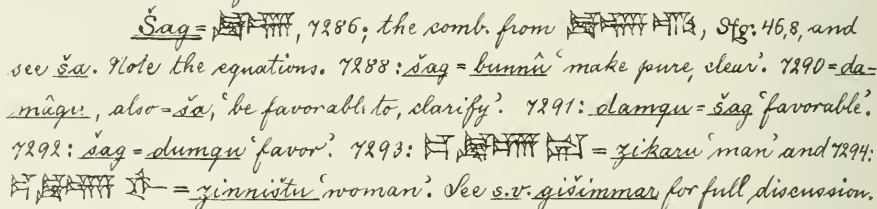 Šag = , 7286; the comb. from , Sfg. 46,8, and
see ša. Note the equations. 7288: šag = bunnû 'make pure, clear'. 7290 = da-
mâqu, also = ša, 'be favorable to, clarify'. 7291: damqu = šag 'favorable'.
7292: šag = dumqu 'favor'. 7293: = zikaru 'man' and 7294:
= zinništu 'woman'. See s.v. gišimmar for full discussion.